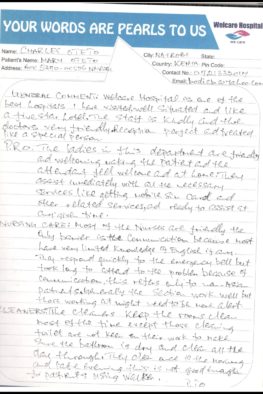 YOUR WORDS ARE PEARLS TO US
Welcare Hospital
Name: CHARLES OTETO
City: NAIROBI State:
Patient's Name: MARY OTETO
Country: KENYA Pin Code:
Address: BOX
Contact No.:
Email:
GENERAL COMMENT: Welcare Hospital is one of the
best hospitals I have visited well situated and like
a five star hotel. The staff is kindly and that
doctors very friendly. Reception perfect and treated
like a special person.
PRO: The ladies in this department are friendly
and welcoming making the Patient and the
attendant feel welcome and at home. They
assist immediately with all the necessary
services like getting mobile Sim Card and
other related services and ready to assist at
any given time.
NURSING CARE: Most of the Nurses are friendly the
only barrier is the communication because most
have very limited knowledge of English if any.
They respond quickly to the emergency bell but
took long to attend to the problem because of
communication, this refers only to non-Asian
Patients especially like Section work well but
those working at night need to be more alert
CLEANERS: The cleaners keep the rooms clean
most of the time except those cleaning
toilet are not keen on their work to make
sure the bathroom is dry and clean all the
day through. They clean once in the morning
and late evening this is not good enough
for patients using walker.
P.T.O